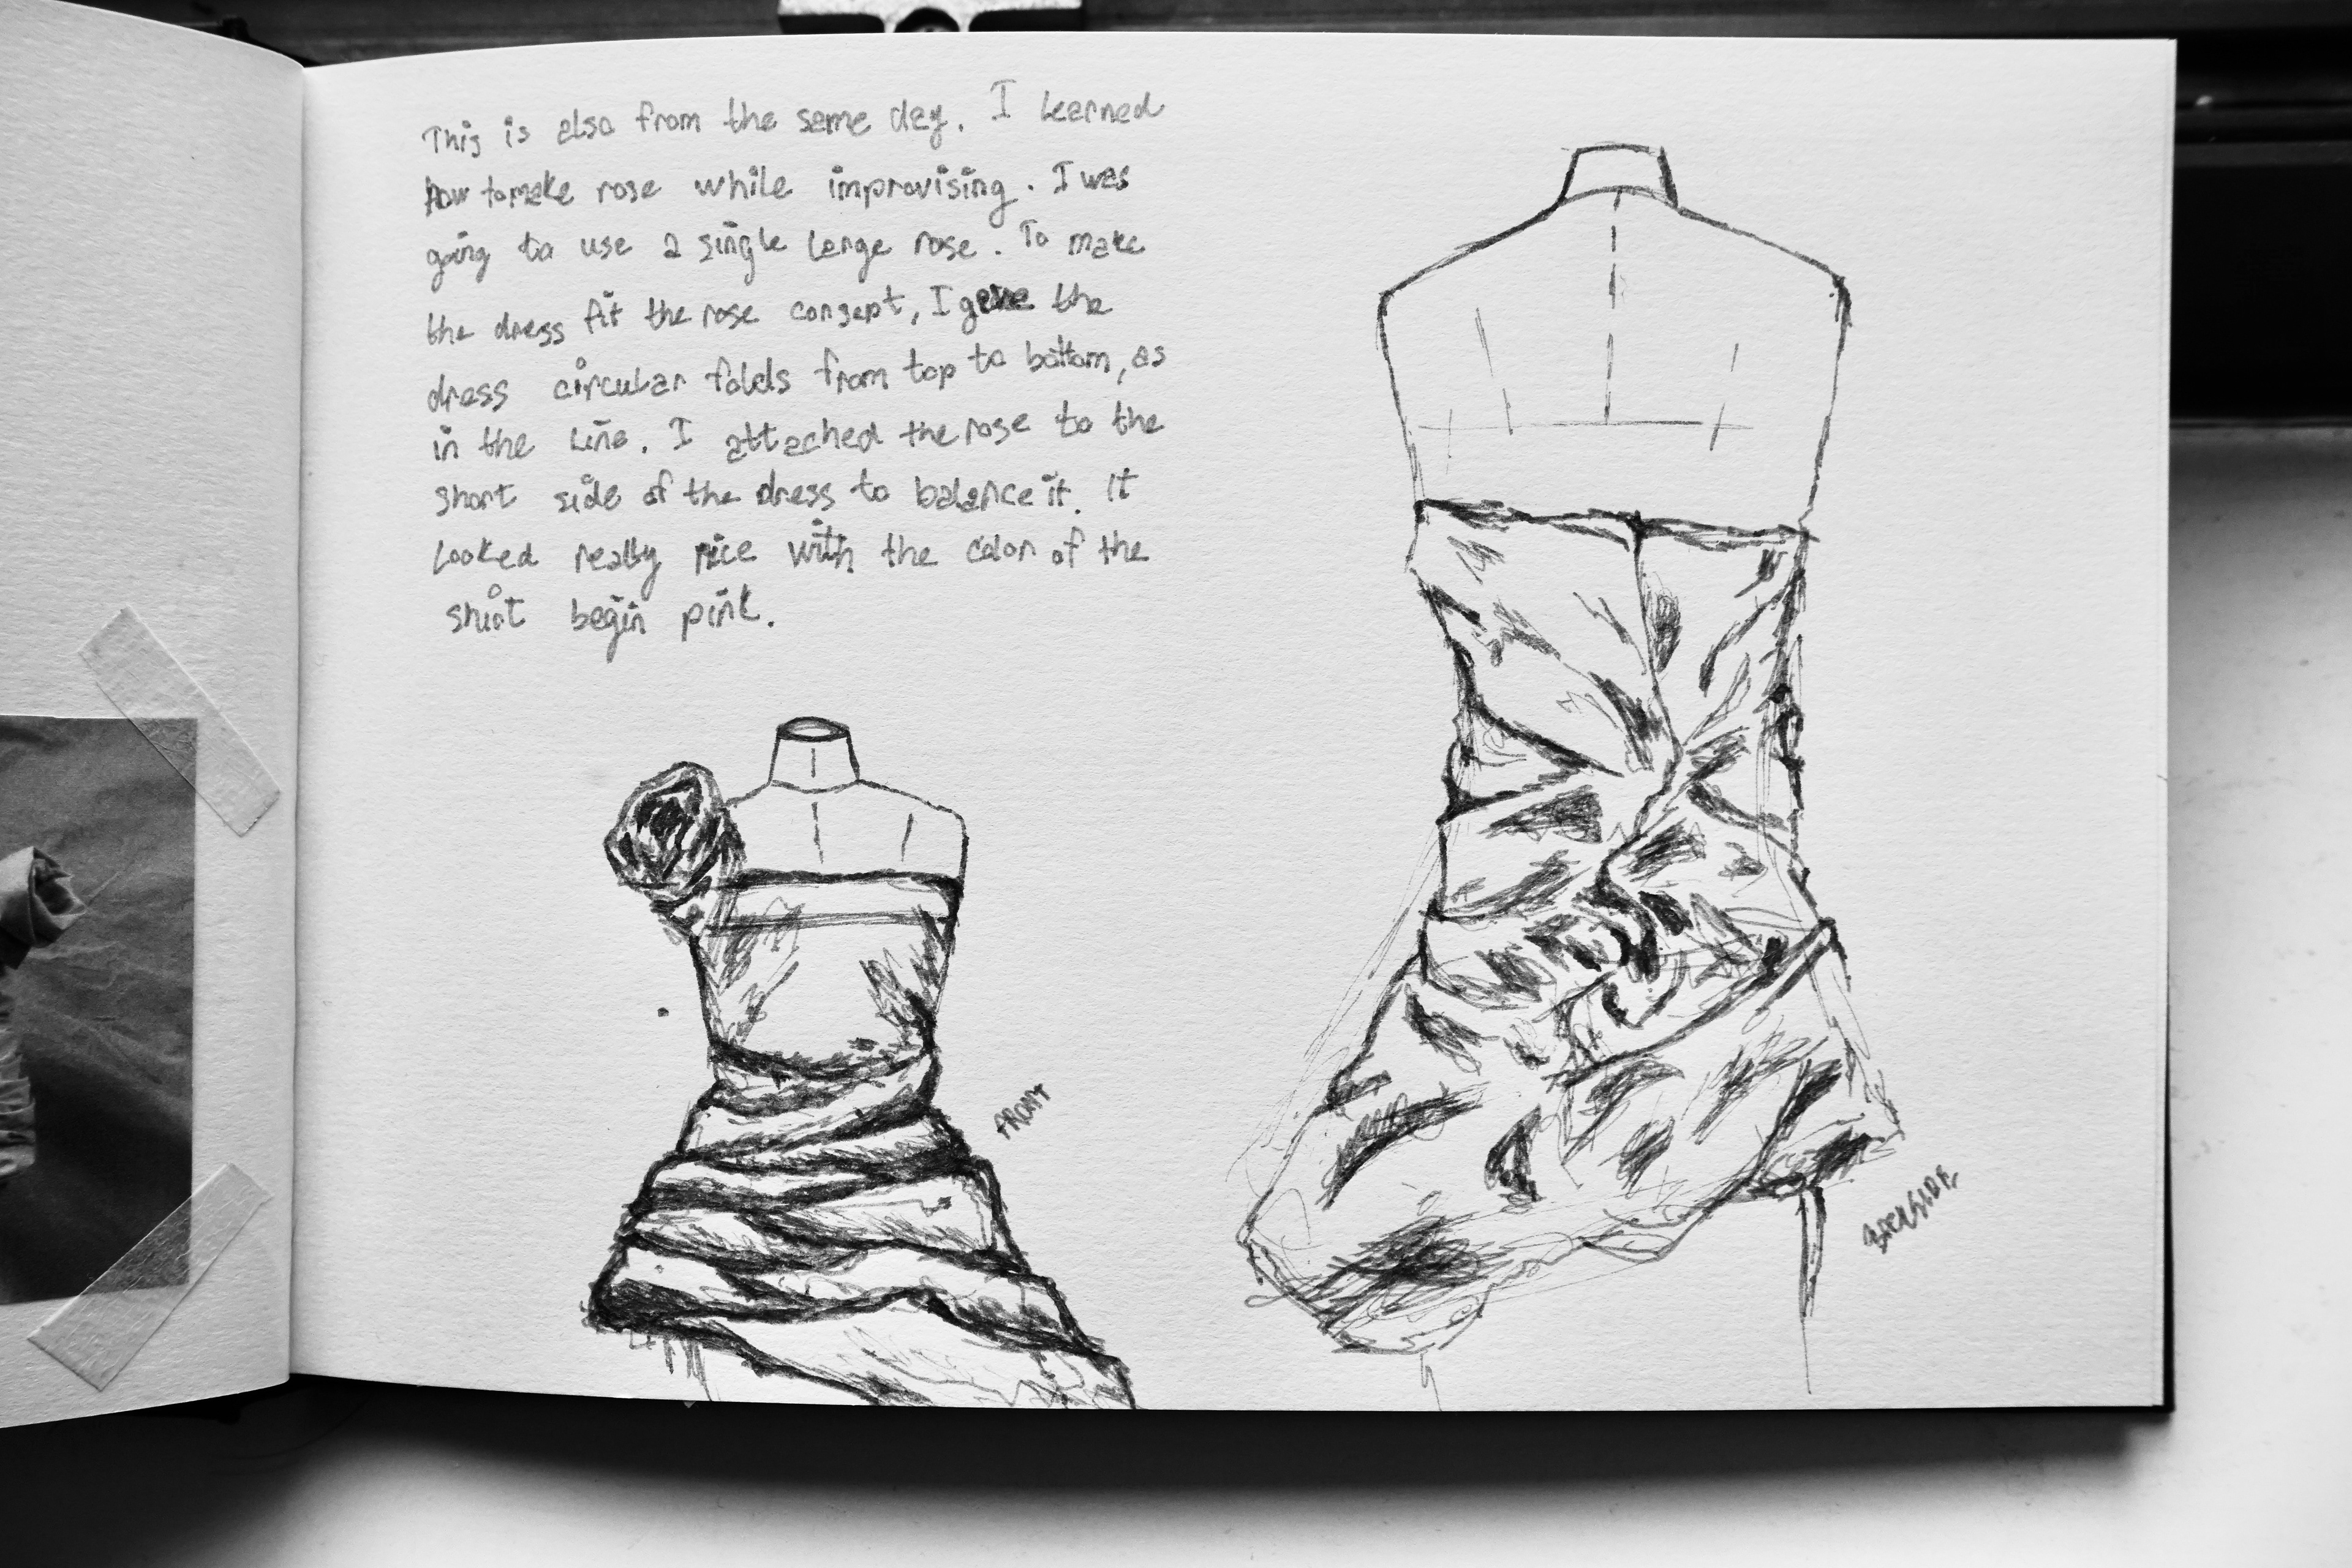 This is also from the same day. I learned
how to make rose while improvising. I was
going to use a single large rose. To make
the dress fit the rose concept, I gave the
dress circular folds from top to bottom, as
in the line. I attached the rose to the
short side of the dress to balance it. It
looked really nice with the color of the
shirt begin pink.
FRONT
BACKSIDE